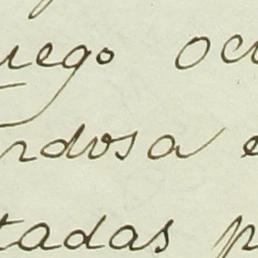 uego ocu
rdosa e
tadas p